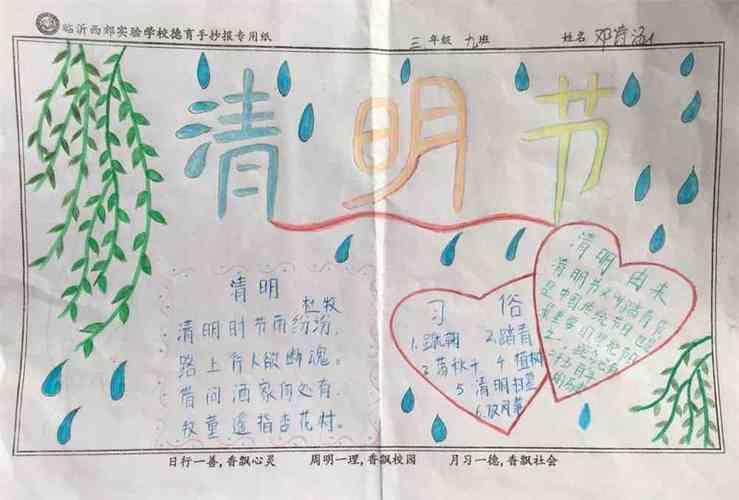 临沂西郊实验学校德育手抄报专用纸 三年级 九班 姓名
清明节
清明
杜牧
清明时节雨纷纷,
路上行人欲断魂。
借问酒家何处有,
牧童遥指杏花村。
习俗
1.蹴鞠 2.踏青
3 荡秋千 4 植树
5 清明扫墓
6.放风筝
清明由来
清明节又叫踏青节
是中国传统节日也是
最重要的祭祀节日
日行一善,香飘心灵 周明一理,香飘校园 月习一德,香飘社会